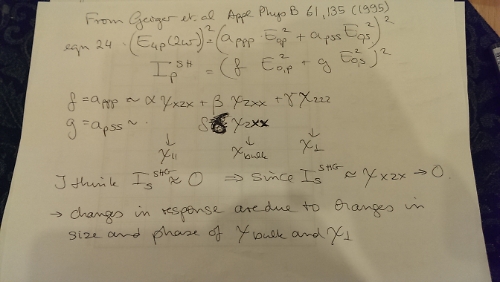 From Geiger et.al Appl Phys B 61, 135 (1995)
eqn 24 · (E4p(2ω))² = (appp · E0p² + apss E0s²)²
Ip^SH = (f E0,p² + g E0s²)²
f = appp ≈ α χxzx + β χzxx + γ χzzz
g = apss ≈ δ χzxx
↓ ↓ ↓
χ11 χbulk χ⊥
I think Is^SHG ≈ 0 ⇒ since Is^SHG ≈ χxzx → 0.
→ changes in response are due to changes in
size and phase of χbulk and χ⊥